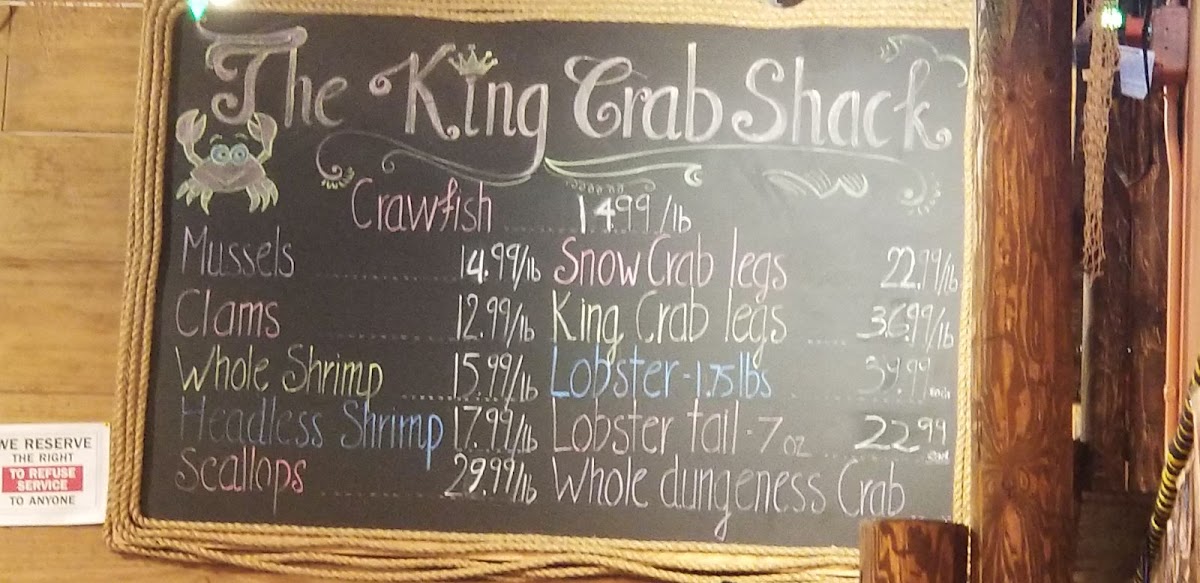 The King Crab Shack
Crawfish 14.99/lb
Mussels 14.99/lb
Clams 12.99/lb
Whole Shrimp 15.99/lb
Headless Shrimp 17.99/lb
Scallops 29.99/lb
Snow Crab legs 22.99/lb
King Crab legs 36.99/lb
Lobster - 1.75 lbs 39.99 each
Lobster tail - 7 oz 22.99
Whole dungeness Crab
WE RESERVE
THE RIGHT
TO REFUSE
SERVICE
TO ANYONE